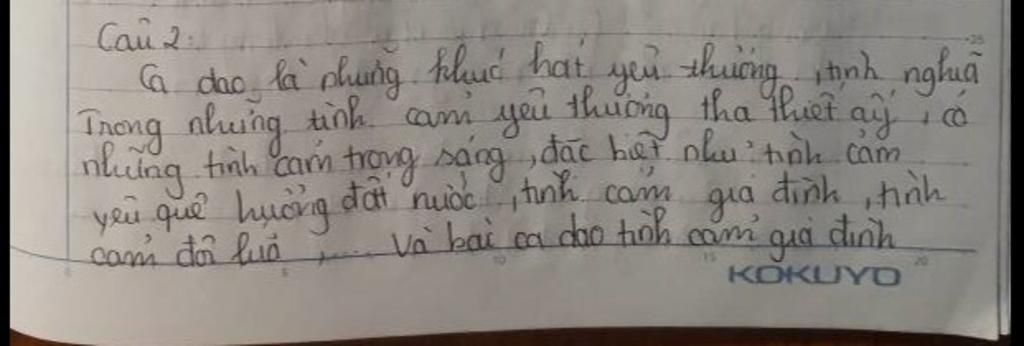 Câu 2:
Ca dao là những khúc hát yêu thương, tình nghĩa
Trong những tình cảm yêu thương tha thiết ấy, có
những tình cảm trong sáng, đặc biệt như tình cảm
yêu quê hương đất nước, tình cảm gia đình, tình
cảm đôi lứa, ... Và bài ca dao tình cảm gia đình
KOKUYO